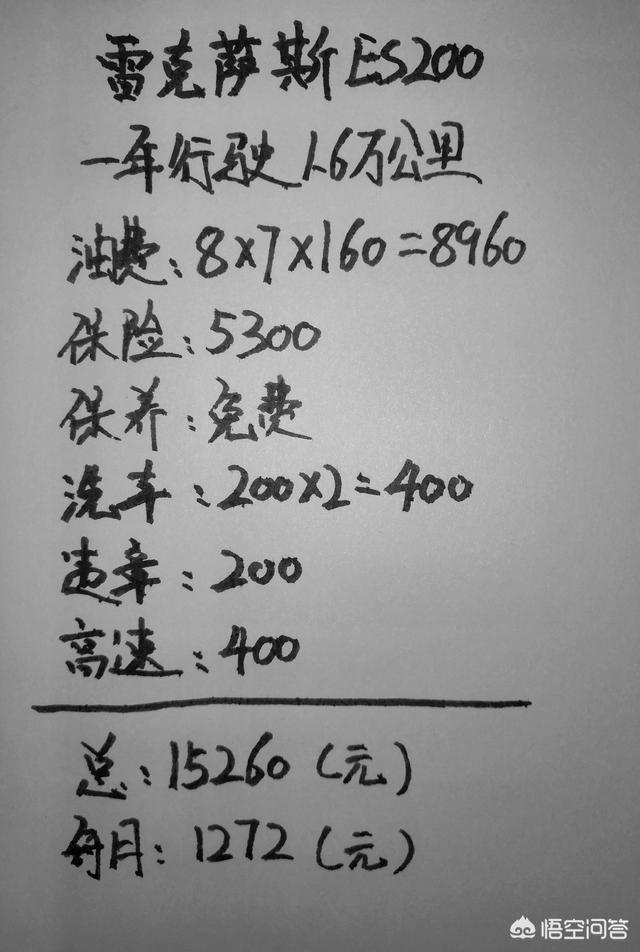 雷克萨斯ES200
一年行驶1.6万公里
油费：8×7×160=8960
保险：5300
保养：免费
洗车：200×2=400
违章：200
高速：400
总：15260（元）
每月：1272（元）
悟空问答